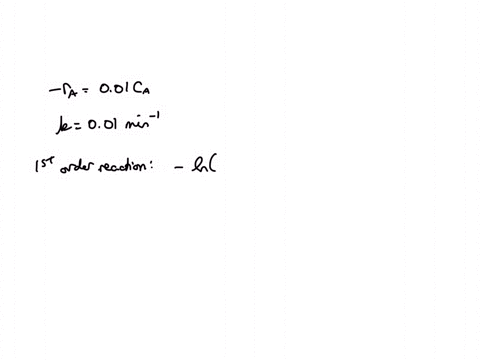 -rA = 0.01 CA
k = 0.01 min⁻¹
1ST order reaction: - ln(